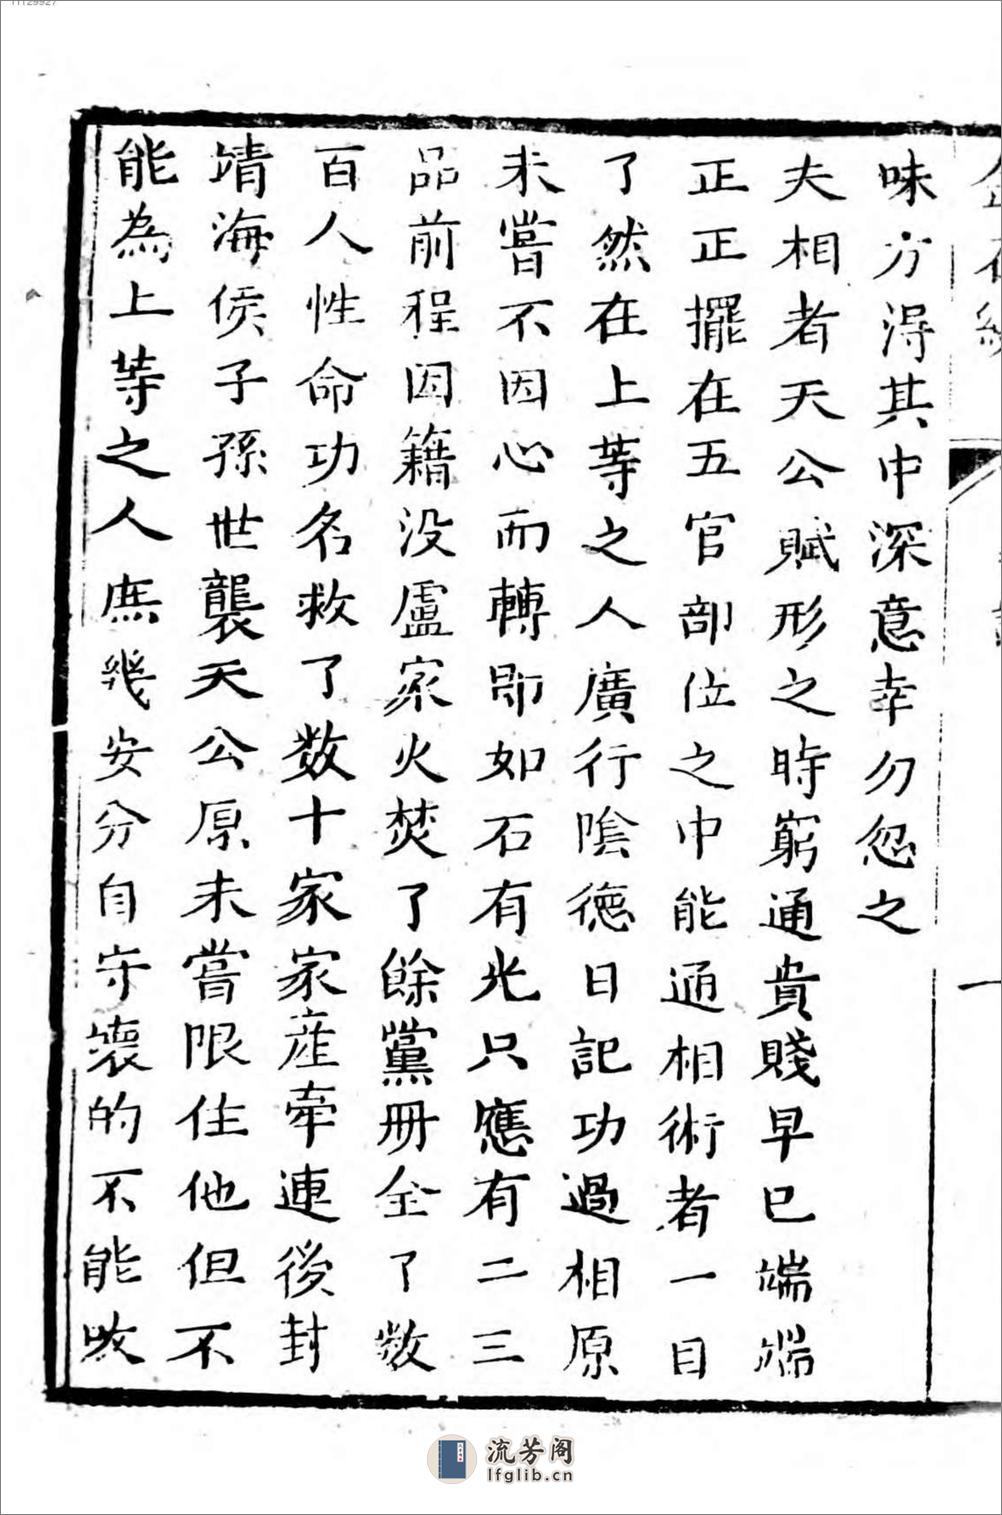 味方淂其中深意幸勿忽之
夫相者天公賦形之時窮通貴賤早已端端
正正擺在五官部位之中能通相術者一目
了然在上等之人廣行陰德日記功過相原
未嘗不因心而轉即如石有光只應有二三
品前程因籍没盧家火焚了餘黨冊全了数
百人性命功名救了数十家家產牽連後封
靖海侯子孫世襲天公原未嘗限住他但不
能為上等之人庶幾安分自守壞的不能改
一
流芳阁
lfglib.cn
11129927